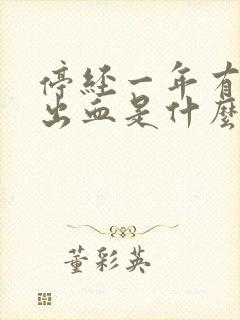 停經一年有
出血是什麼
董彩英